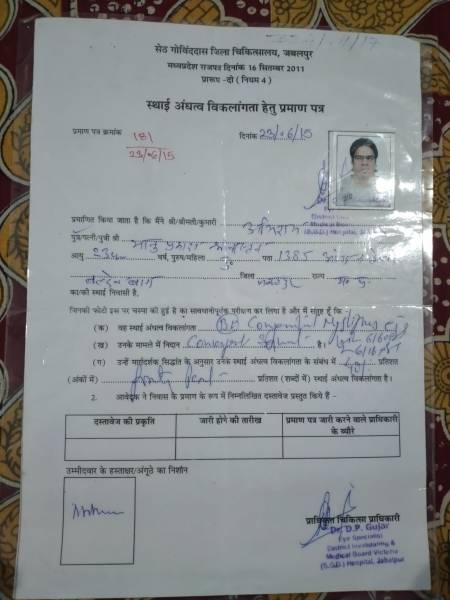 सेठ गोविंददास जिला चिकित्सालय, जबलपुर
मध्यप्रदेश राजपत्र दिनांक 16 सितम्बर 2011
प्रारूप -दो ( नियम 4 )
स्थाई अंधत्व विकलांगता हेतु प्रमाण पत्र
प्रमाण पत्र क्रमांक 181 दिनांक 23/06/15
23/06/15
प्रमाणित किया जाता है कि मैंने श्री/श्रीमती/कुमारी
पुत्र/पत्नी/पुत्री श्री
आयु वर्ष, पुरुष/महिला पु० पता 1385
जिला जबलपुर राज्य म० प्र०
का/की स्थाई निवासी है,
जिनकी फोटो इस पर चस्पा की हुई है का सावधानीपूर्वक परीक्षण कर लिया है और मैं संतुष्ट हूँ कि -
(क) वह स्थाई अंधत्व विकलांगता
(ख) उनके मामले में निदान Convergent Squint
(ग) उन्हें मार्गदर्शक सिद्धांत के अनुसार उनके स्थाई अंधत्व विकलांगता के संबंध में प्रतिशत
(अंकों में) प्रतिशत (शब्दों में) स्थाई अंधत्व विकलांगता है।
2. आवेदक ने निवास के प्रमाण के रूप में निम्नलिखित दस्तावेज प्रस्तुत किये हैं -
दस्तावेज की प्रकृति जारी होने की तारीख प्रमाण पत्र जारी करने वाले प्राधिकारी के ब्यौरे
उम्मीदवार के हस्ताक्षर/अंगूठे का निशान
प्राधिकृत चिकित्सा प्राधिकारी
Dr. D.P. Gujar
Eye Specialist
District Invalidating &
Medical Board Victoria
(S.G.D.) Hospital, Jabalpur